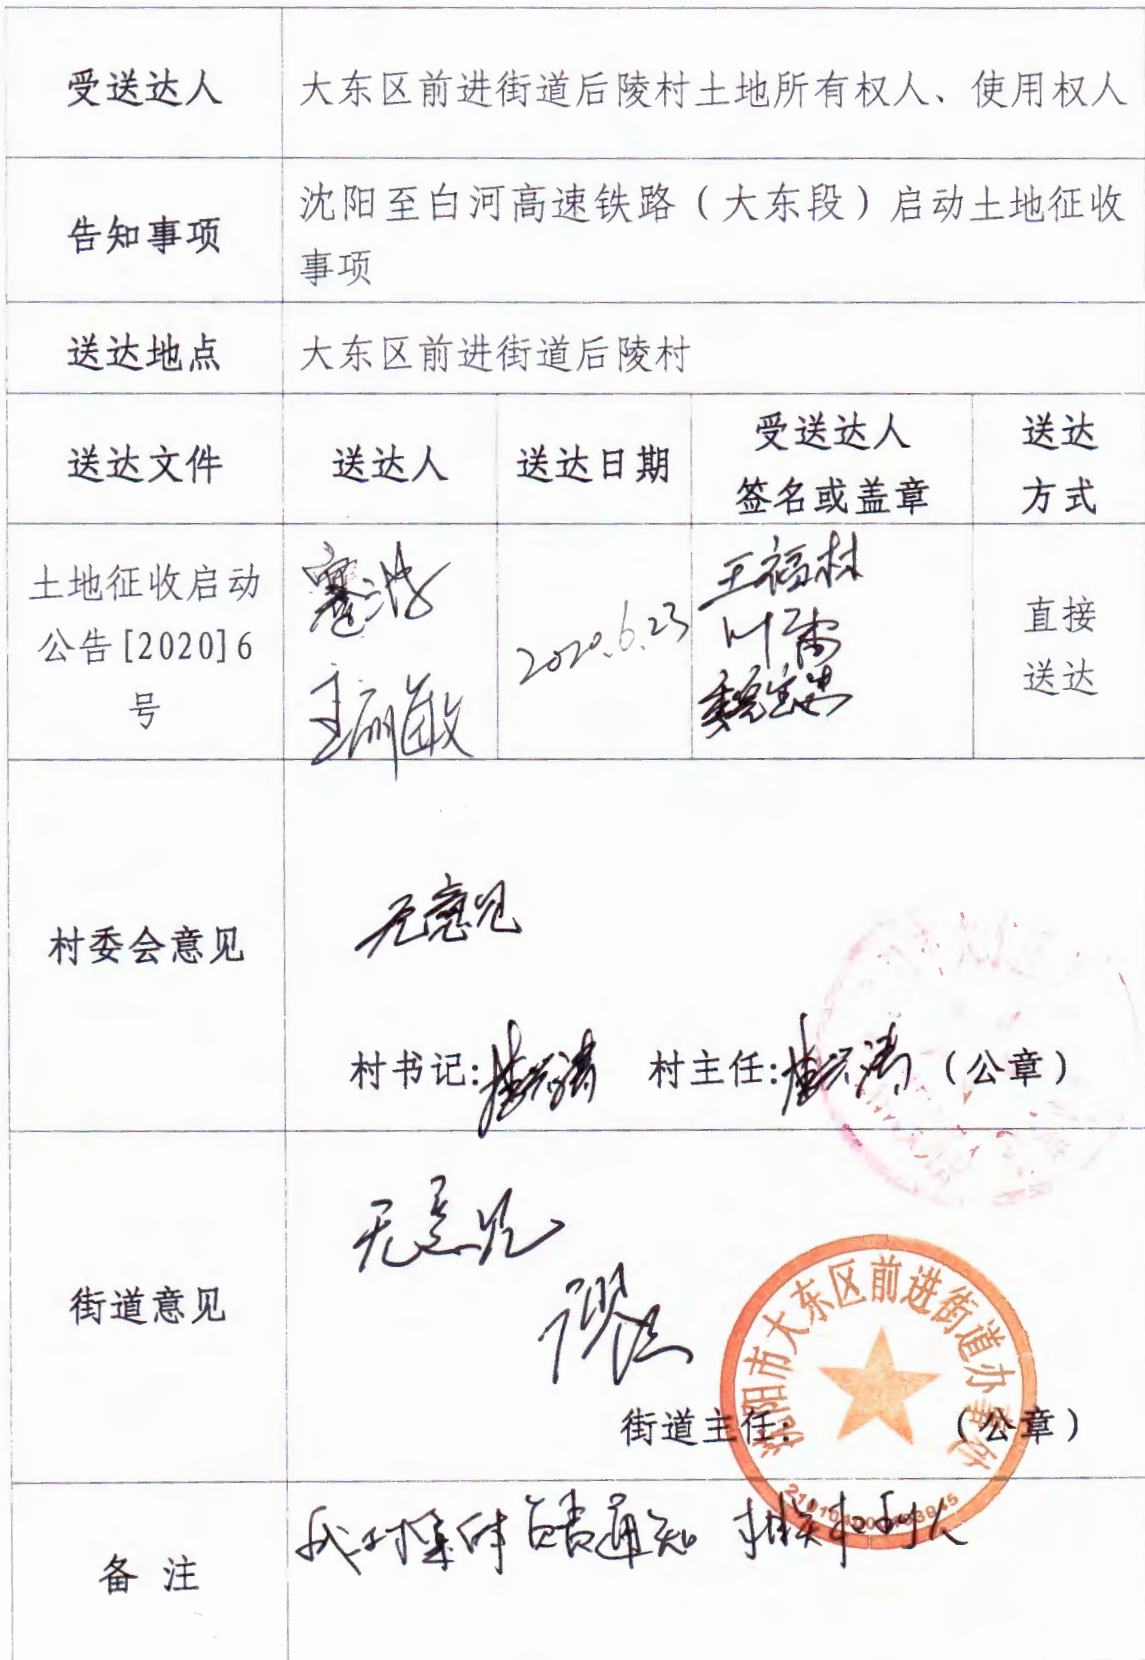 受送达人
大东区前进街道后陵村土地所有权人、使用权人
告知事项
沈阳至白河高速铁路（大东段）启动土地征收
事项
送达地点
大东区前进街道后陵村
送达文件
送达人
送达日期
受送达人
签名或盖章
送达
方式
土地征收启动
公告[2020]6
号
2020.6.23
王福林
直接
送达
村委会意见
无意见
村书记:
村主任:
（公章）
街道意见
无意见
街道主任:
（公章）
沈阳市大东区前进街道办事处
备 注
我村集体负责通知 相关权利人